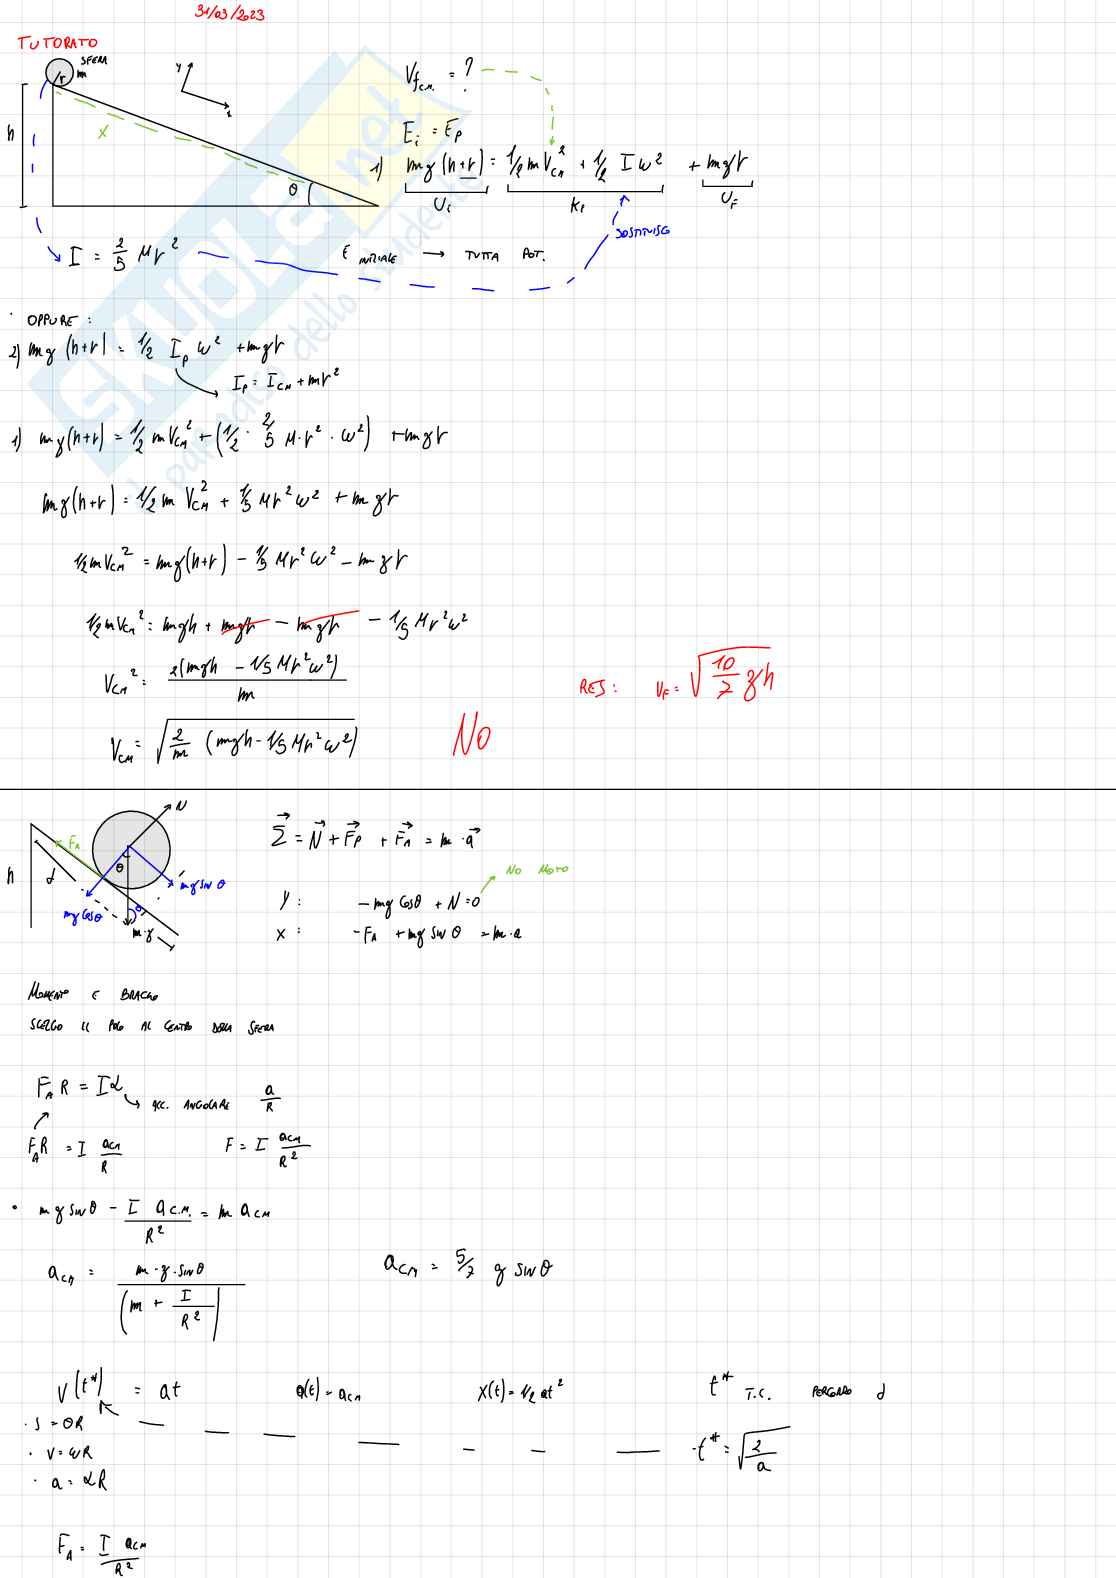 31/03/2023
TUTORATO
SFERA
m
r
y
x
h
X
θ
V_{f_{C.M.}} = ?
E_i = E_P
1) mg(h+r) = 1/2 m V_{CM}^2 + 1/2 I ω^2 + mgr
U_i K_f U_F
SOSTITUISCO
I = 2/5 M r^2
E INIZIALE → TUTTA POT.
OPPURE:
2) mg(h+r) = 1/2 I_P ω^2 + mgr
I_P = I_{CM} + mr^2
1) mg(h+r) = 1/2 m V_{CM}^2 + (1/2 · 2/5 M·r^2 · ω^2) + mgr
mg(h+r) = 1/2 m V_{CM}^2 + 1/5 Mr^2ω^2 + mgr
1/2 m V_{CM}^2 = mg(h+r) - 1/5 Mr^2ω^2 - mgr
1/2 m V_{CM}^2 = mgh + mgr - mgr - 1/5 Mr^2ω^2
V_{CM}^2 = 2(mgh - 1/5 Mr^2ω^2)/m
RES: V_F = √(10/7 gh)
V_{CM} = √(2/m (mgh - 1/5 Mr^2ω^2))
NO
N
F_A
h
d
θ
mg sin θ
mg cos θ
θ
m·g
Σ = N + F_P + F_A = m·a
NO MOTO
Y: -mg cos θ + N = 0
X: -F_A + mg sin θ = m·a
MOMENTO E BRACCIO
SCELGO IL POLO AL CENTRO DELLA SFERA
F_A R = Iα
ACC. ANGOLARE a/R
F_A R = I a_{CM}/R
F = I a_{CM}/R^2
• mg sin θ - I a_{C.M.}/R^2 = m a_{CM}
a_{CM} = m·g·sin θ/(m + I/R^2)
a_{CM} = 5/7 g sin θ
V(t*) = at
a(t) = a_{CM}
X(t) = 1/2 at^2
t* T.C. PERCORRO d
· S = θR
· V = ωR
· a = αR
· t* = √(2/a)
F_A = I a_{CM}/R^2
SKUOLA.net
il paradiso dello studente